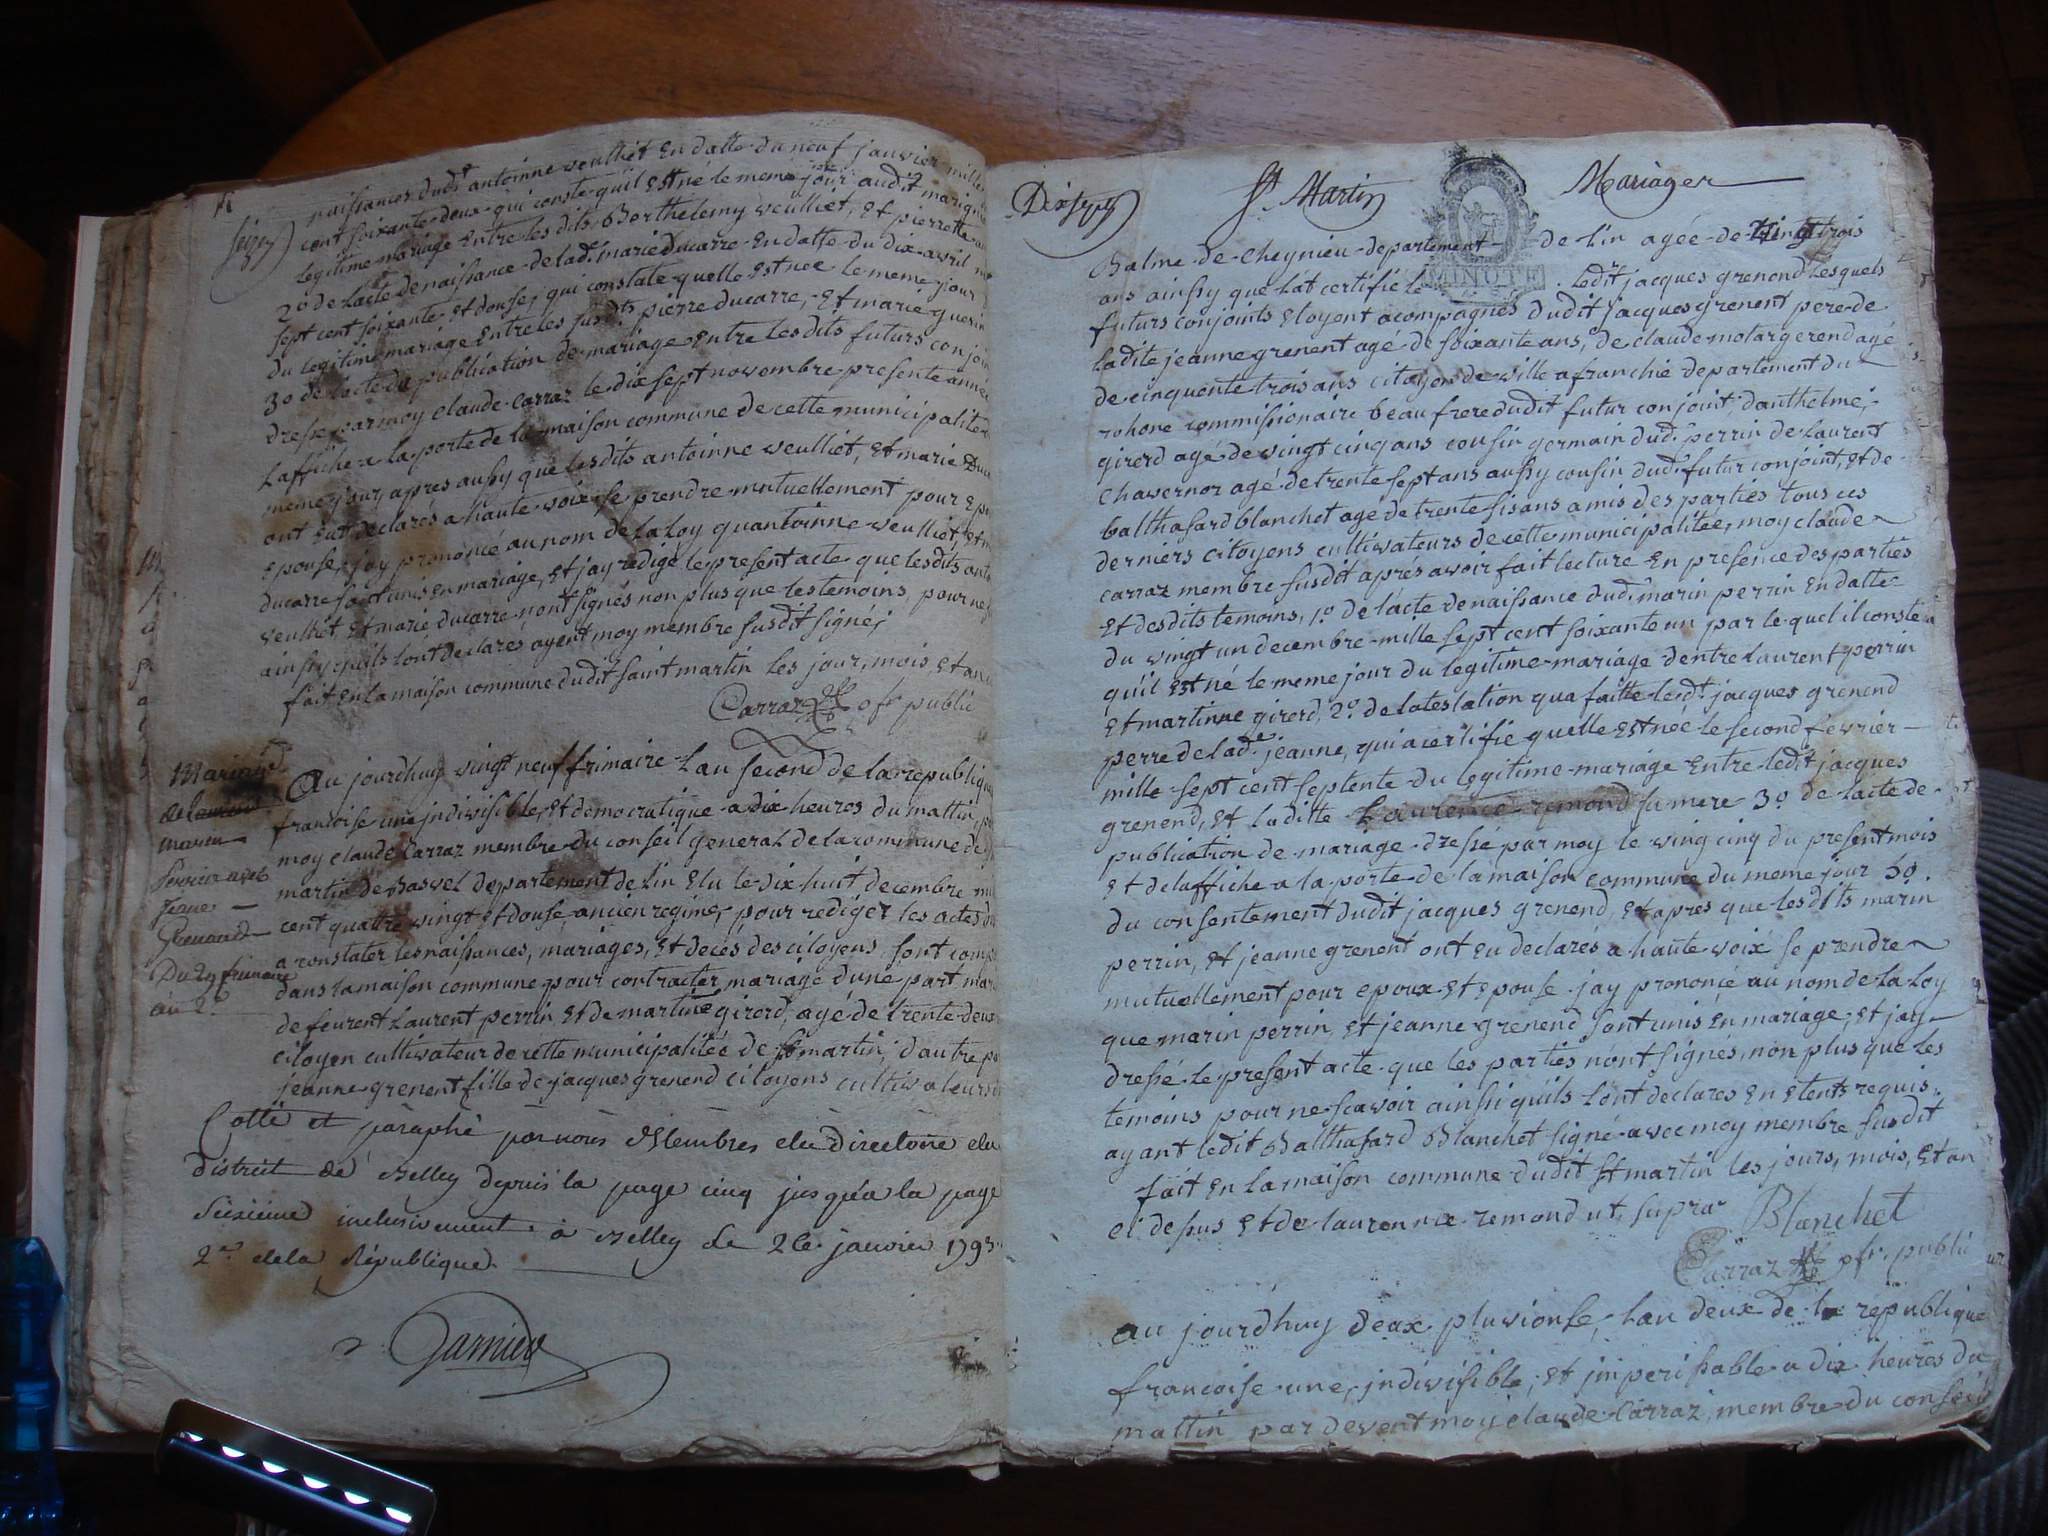 seize
naissances dudt antoinne veulliet En datte du neuf janvier mille
cent soixante deux qui conste quil Est né le meme jour audit marigni
legitime mariage Entre les dits Berthelemy veulliet, Et pierrette
2o de lacte de naissance de lad. marie ducarre En datte du dix avril
sept cent soixante Et douse, qui constate quelle Est nee le meme jour
du legitime mariage Entre les susdts pierre ducarre, Et marie guerin
3o de lacte de publication de mariage Entre les dits futurs conjoin
dresse par moy Claude Carraz le dix sept novembre presente année
Laffiche a la porte de la maison commune de cette municipalitée
meme jour, apres aussy que lesdits antoinne veulliet, Et marie Duca
ont Eut déclarés a haute voix se prendre mutuellement pour Ep
Epouse, jay prononcé au nom de La Loy quantoinne veulliet, Et m
ducarre sont unis En mariage, Et jay redigé le present acte que lesdits anto
veulliet, Et marie ducarre nont signés non plus que les temoins, pour ne
ainssy quils lont déclarés ayent moy membre susdit signé,
fait En la maison commune dudit saint martin les jour, mois, Et an
Carraz ofr public
Mariage
marin
Perrin avec
Jeane
Grenand
Du 29 frimaire
an 2e
Au jourdhuy vingt neuf frimaire Lan second de la republiq
francoise une, jndivisible, Et democratique a dix heures du mattin, p
moy claude Carraz membre du conseil general de la commune de
martin de Bavel departement de Lin Elu le dix huit decembre mi
cent quattre vingt Et douse, ancien regime, pour rediger les actes d
a constater les naissances, mariages, Et deces des citoyens sont comp
dans la maison commune pour contracter mariage d'une part mar
de feu rent Laurent perrin Et de martine girerd, agé de trente deux
citoyen cultivateur de cette municipalitée de st martin, dautre pa
jeanne grenent fille de jacques grenend citoyens cultivateurs
Cotté et paraphé par nous Membres du Directoire du
district de Belley depuis la page cinq jusqu'a la page
Seizieme inclusivement. à Belley le 26 janvier 1793
2e de la République.
Garnier
Dix sept
St. Martin
Mariages
MINUTE
Balme de cheynieu departement de Lin agée de vingt trois
ans ainssy que lat certifié le ledit jacques grenend Lesquels
futurs conjoints Etoyent acompagnés dudit jacques grenent pere de
ladite jeanne grenent agé de soixante ans, de claude motargerend agé
de cinquente trois ans citoyen de ville afranchie departement du
rohone commissionaire beau frere dudit futur conjoint, danthelme
girerd agé de vingt cinq ans cousin germain dud. perrin de Laurent
chavernor agé de trente sept ans aussy cousin dud. futur conjoint, Et de
balthasard blanchet age de trente sis ans amis des parties tous ces
derniers citoyens cultivateurs de cette municipalitée, moy claude
carraz membre susdit apres avoir fait lecture En presence des parties
Et desdits temoins, 1o de l'acte de naissance dud. marin perrin En datte
du vingt un decembre mille sept cent soixante un par le quel il conste
qu'il Est né le meme jour du legitime mariage d'entre Laurent perrin
Et martinne girerd, 2o de latestation qua faitte ledt jacques grenend
perre de lade jeanne, qui a certifie quelle Est nee le second fevrier
mille sept cent septente du legitime mariage Entre ledit jacques
grenend, Et laditte Laurence remond sa mere 3o de lacte de
publication de mariage dressé par moy le ving cinq du present mois
Et de laffiche a la porte de la maison commune du meme jour 50.
du consentement dudit jacques grenend, Et apres que les dits marin
perrin, Et jeanne grenent ont Eu déclarés a haute voix se prendre
mutuellement pour epoux Et epouse jay prononcé au nom de La Loy
que marin perrin, Et jeanne grenend sont unis En mariage, Et jay
dressé le present acte que les parties n'ont signés, non plus que les
temoins pour ne scavoir ainssi qu'ils lont declares En Etents requis
ayant ledit Balthasard Blanchet signé avec moy membre susdit
fait En la maison commune dudit st martin les jours, mois, Et an
ci dessus Et de laurence remond ut supra
Blanchet
Carraz ofr. public
au jourdhuy deux pluviose, Lan deux de la republique
francoise une, jndivisible, Et jmperissable a dix heures du
mattin par devent moy claude Carraz, membre du conseil